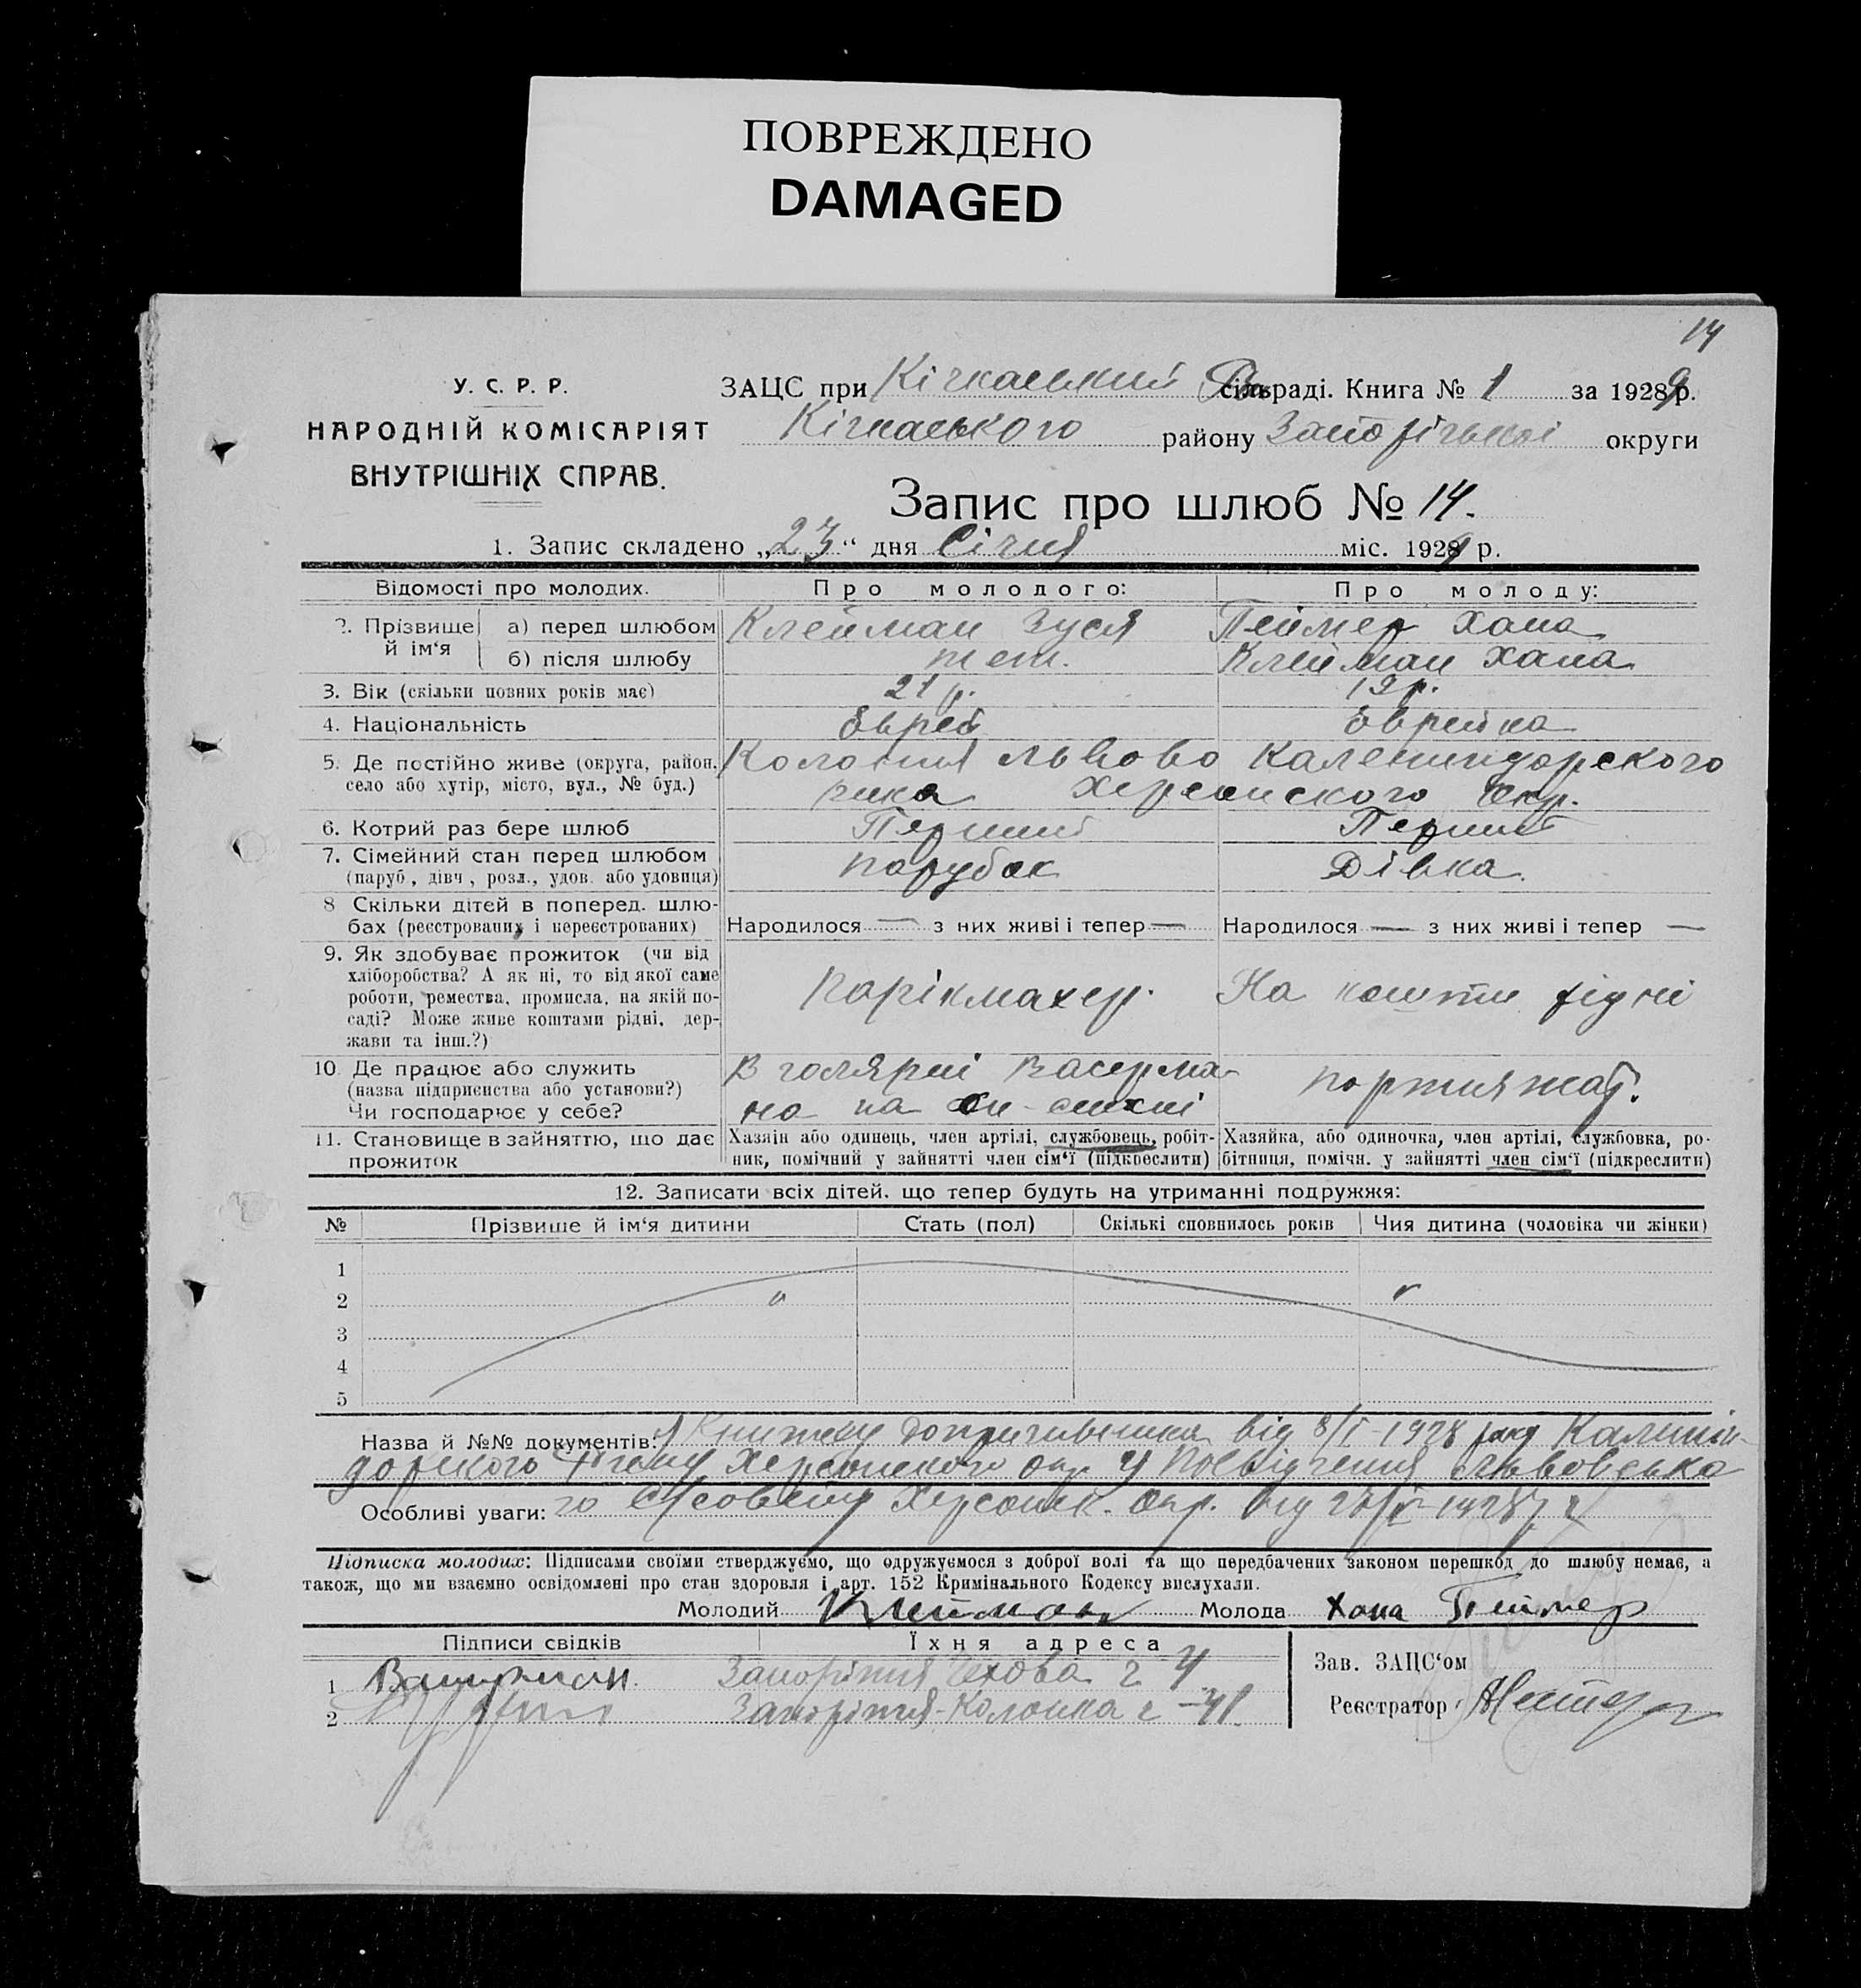 ПОВРЕЖДЕНО
DAMAGED
14
У. С. Р. Р.
НАРОДНІЙ КОМІСАРІЯТ
ВНУТРІШНІХ СПРАВ.
ЗАЦС при Кічкаський сільраді. Книга № 1 за 1929 р.
Кічкаського району Запорізької округи
Запис про шлюб № 14.
1. Запис складено „23“ дня Січня міс. 1929 р.
Відомості про молодих. Про молодого: Про молоду:
2. Прізвище й ім‘я а) перед шлюбом Клейман Зуся Пеймер Хана
б) після шлюбу теж. Клейман Хана
3. Вік (скільки повних років має) 21 р. 19 р.
4. Національність Єврей Єврейка
5. Де постійно живе (округа, район, Колонія Львово Калениндорского
село або хутір, місто, вул., № буд.) Херсонского Окр.
6. Котрий раз бере шлюб Перший Перший
7. Сімейний стан перед шлюбом Парубок Дівка.
(паруб., дівч., розл., удов. або удовиця)
8 Скільки дітей в поперед. шлю-
бах (реєстрованих і нереєстрованих) Народилося — з них живі і тепер — Народилося — з них живі і тепер —
9. Як здобуває прожиток (чи від
хліборобства? А як ні, то від якої саме
роботи, ремества, промисла, на якій по- Парікмахер. На кошти рідні
саді? Може живе коштами рідні, дер-
жави та інш.?)
10. Де працює або служить В голярні Васерма-
(назва підприємства або установи?) на на
Чи господарює у себе?
11. Становище в зайняттю, що дає Хазяїн або одинець, член артілі, службовець, робіт- Хазяйка, або одиночка, член артілі, службовка, ро-
прожиток ник, помічний у зайнятті член сім‘ї (підкреслити) бітниця, помічн. у зайнятті член сім‘ї (підкреслити)
12. Записати всіх дітей. що тепер будуть на утриманні подружжя:
№ Прізвище й ім‘я дитини Стать (пол) Скількі сповнилось років Чия дитина (чоловіка чи жінки)
1
2
3
4
5
Назва й №№ документів: Книжку від 8/I-1928 року
Херсонского окр. Посвідчення Львовська
Особливі уваги: го Херсонск. окр. від
Підписка молодих: Підписами своїми стверджуємо, що одружуємося з доброї волі та що передбачених законом перешкод до шлюбу немає, а
також, що ми взаємно освідомлені про стан здоровля і арт. 152 Кримінального Кодексу вислухали.
Молодий Клейман Молода Хана Пеймер
Підписи свідків Їхня адреса
1 Запоріжжя Чехова 2 Зав. ЗАЦС‘ом
2 Запоріжжя-Колонка Реєстратор